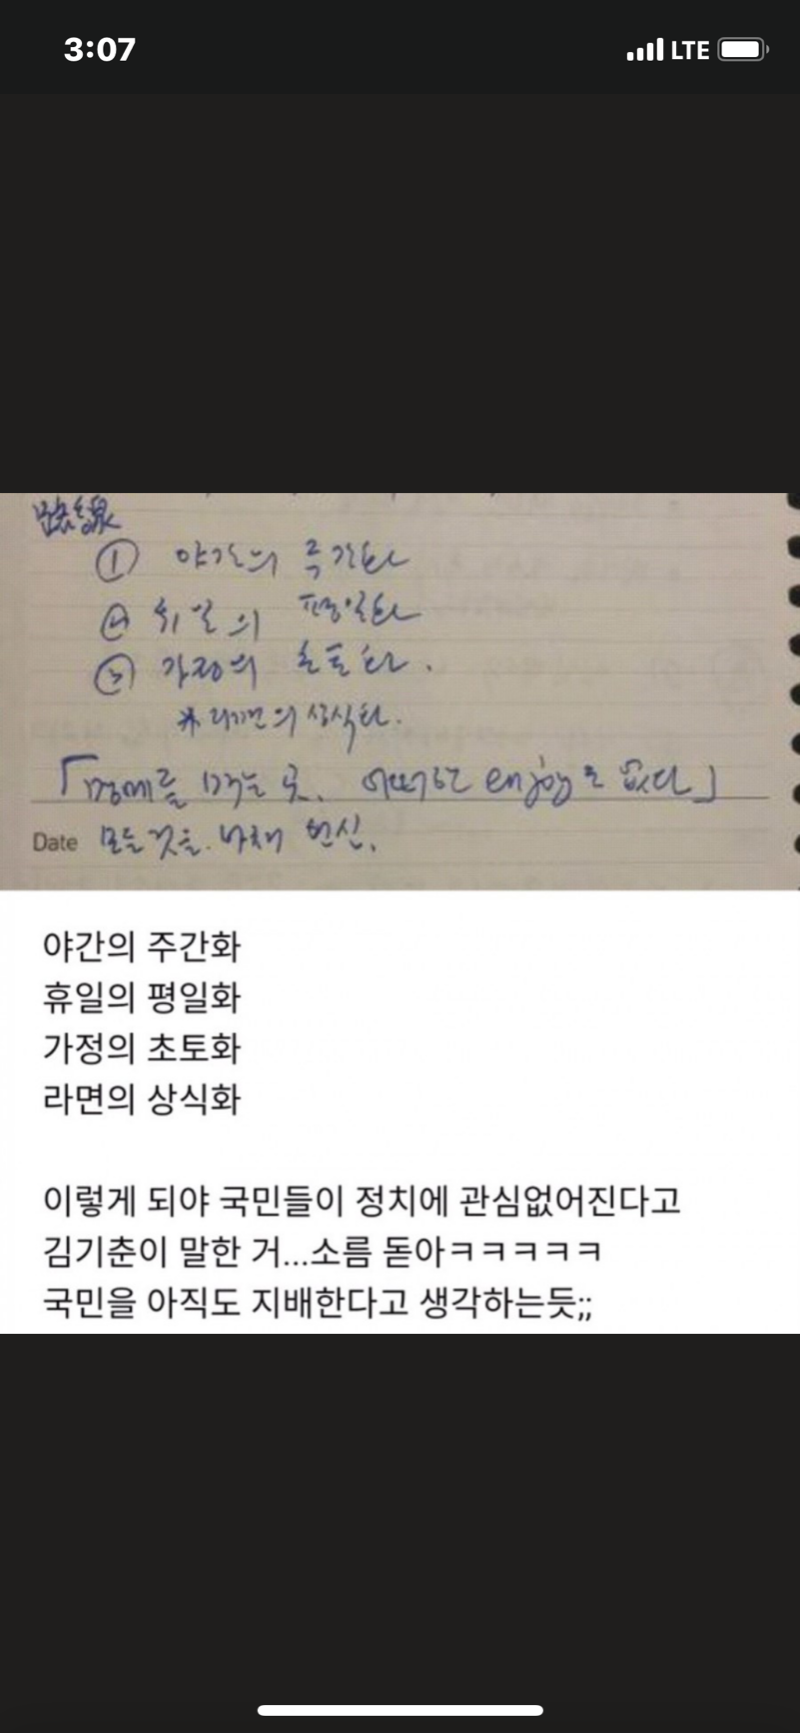 3:07
LTE
路線
① 야간의 주간화
② 휴일의 평일화
③ 가정의 초토화.
* 라면의 상식화.
「명예를 먹는 곳. 어떠한 enjoy도 없다」
Date 모든 것을 바쳐 헌신.
야간의 주간화
휴일의 평일화
가정의 초토화
라면의 상식화
이렇게 되야 국민들이 정치에 관심없어진다고
김기춘이 말한 거...소름 돋아ㅋㅋㅋㅋㅋ
국민을 아직도 지배한다고 생각하는듯;;